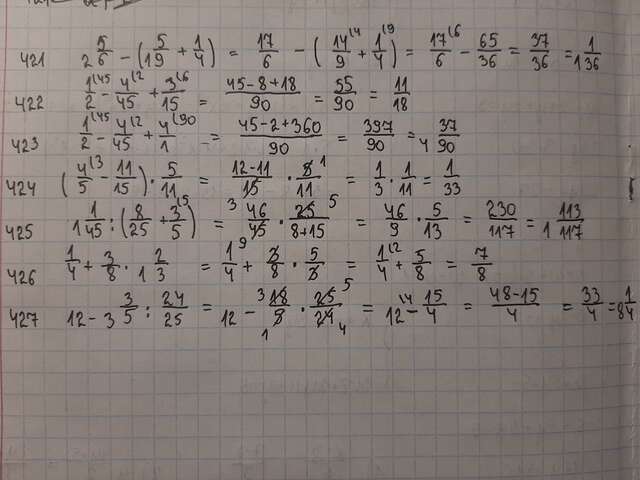 421 2 5/6 - (1 5/9 + 1/4) = 17/6 - (14/9 + 1/4) = 17/6 - 65/36 = 37/36 = 1 1/36
422 1/2 - 4/45 + 3/15 = 45-8+18/90 = 55/90 = 11/18
423 1/2 - 4/45 + 4/1 = 45-2+360/90 = 397/90 = 4 37/90
424 (4/5 - 11/15) · 5/11 = 12-11/15 · 5/11 = 1/3 · 1/11 = 1/33
425 1 1/45 : (8/25 + 3/5) = 46/45 · 25/8+15 = 46/9 · 5/13 = 230/117 = 1 113/117
426 1/4 + 3/8 · 1 2/3 = 1/4 + 3/8 · 5/3 = 1/4 + 5/8 = 7/8
427 12 - 3 3/5 : 24/25 = 12 - 18/5 · 25/24 = 12 - 15/4 = 48-15/4 = 33/4 = 8 1/4